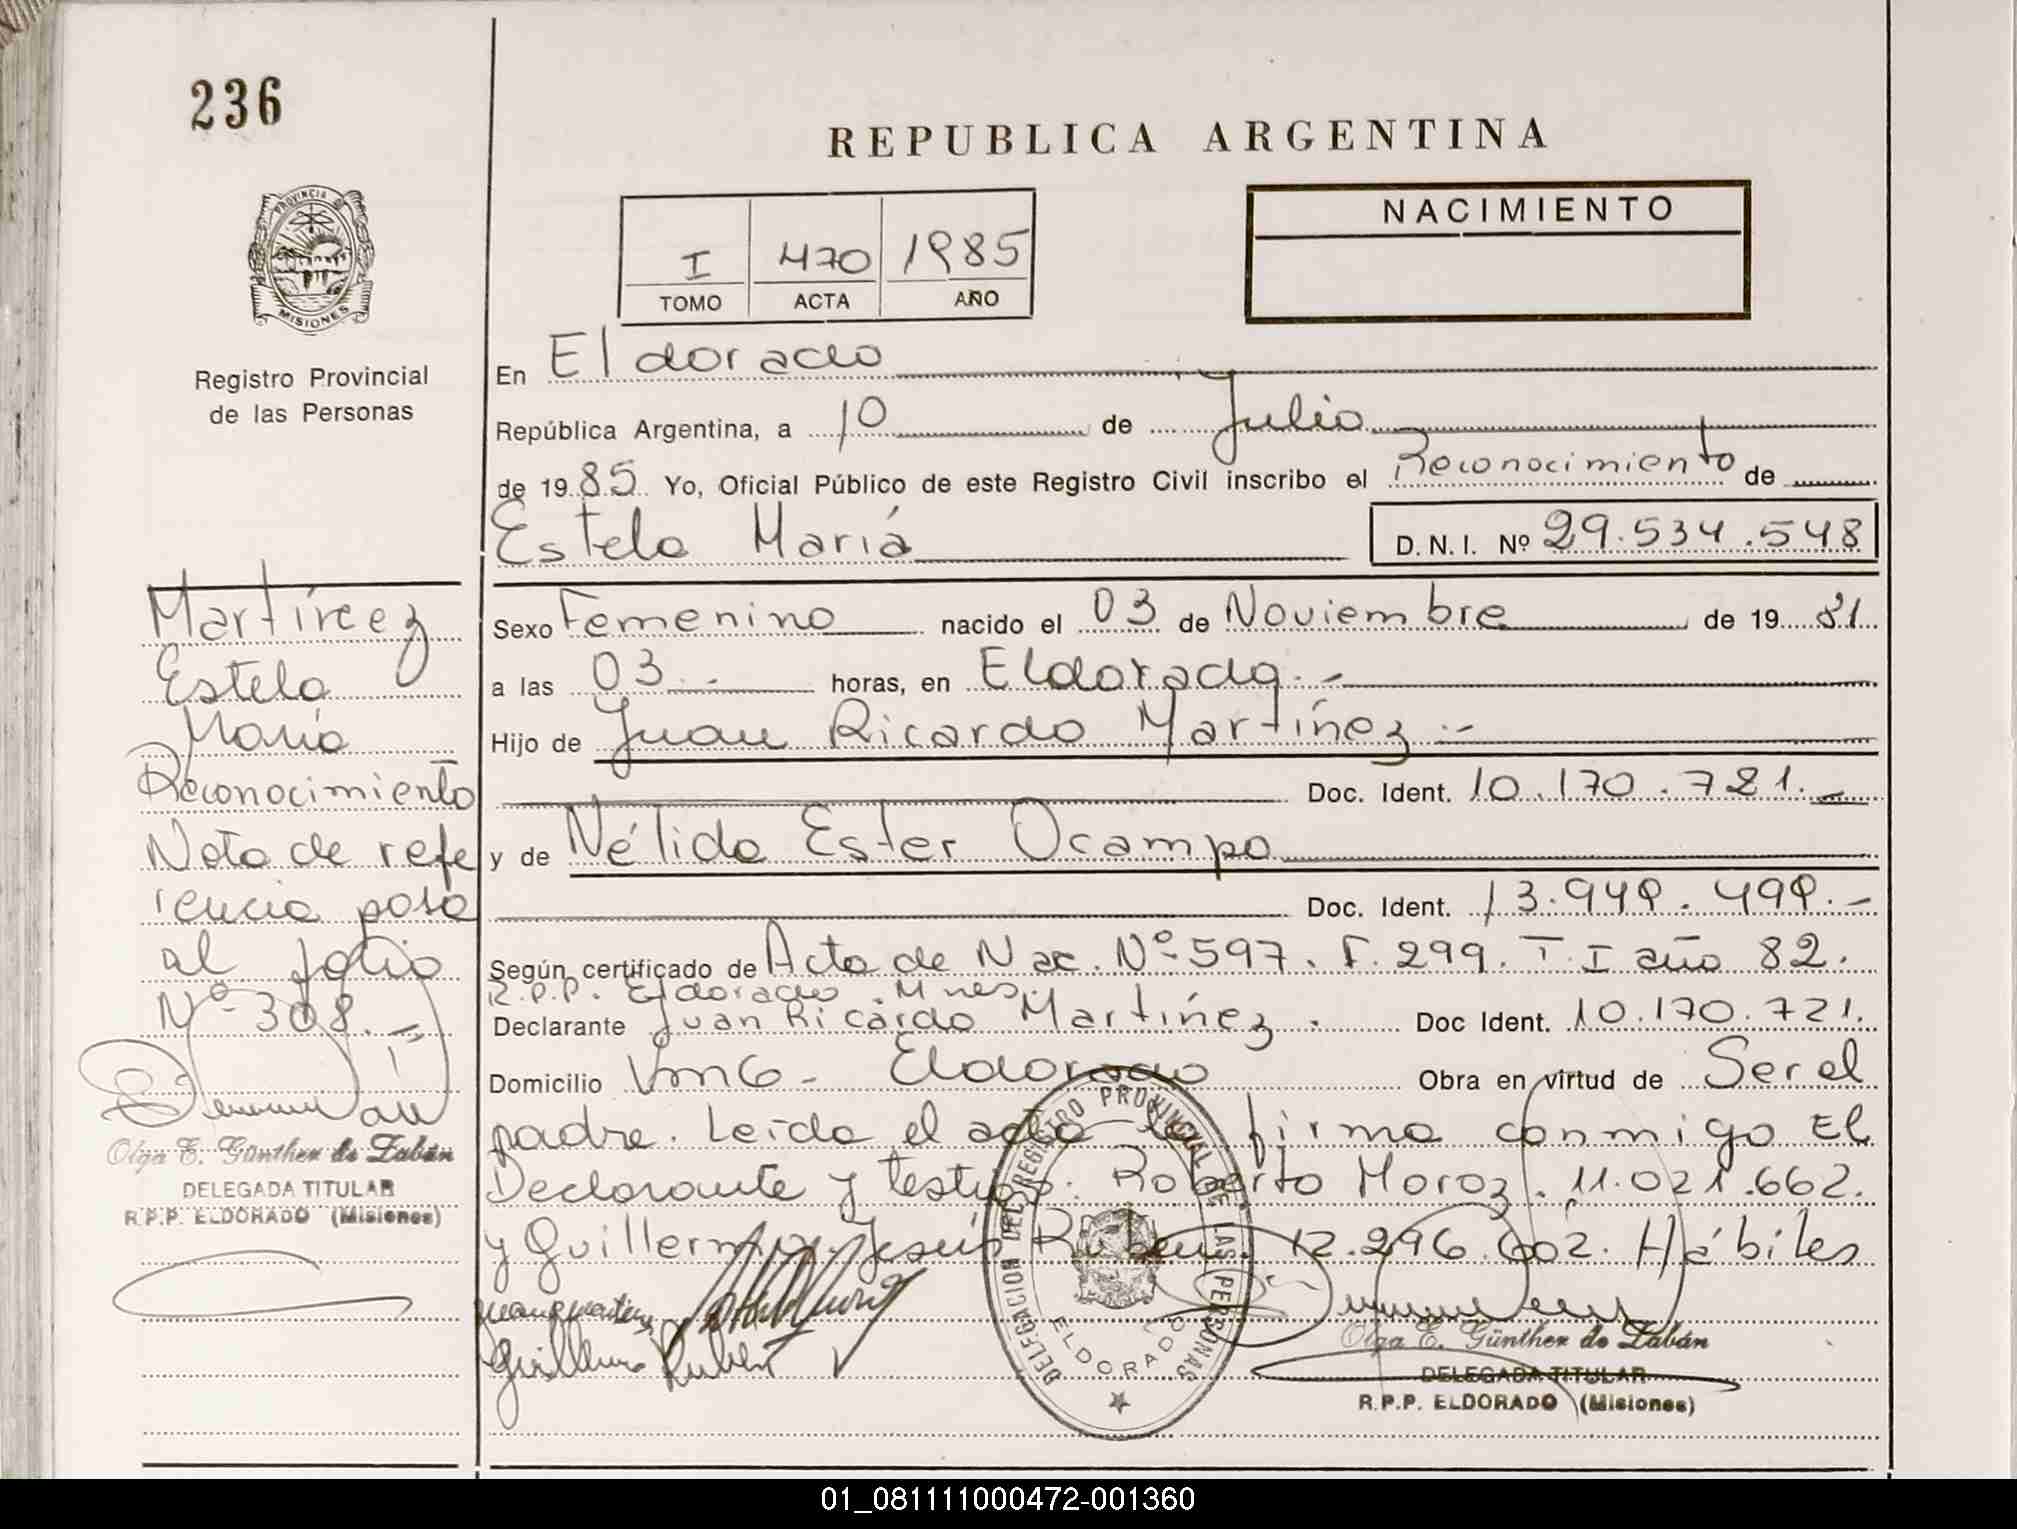 236
REPUBLICA ARGENTINA
PROVINCIA DE MISIONES
I 470 1985
TOMO ACTA AÑO
NACIMIENTO
Registro Provincial
de las Personas
En Eldorado
República Argentina, a 10 de Julio
de 1985 Yo, Oficial Público de este Registro Civil inscribo el Reconocimiento de
Estela María
D.N.I. Nº 29.534.548
Sexo Femenino nacido el 03 de Noviembre de 1981
a las 03 . horas, en Eldorado.-
Hijo de Juan Ricardo Martínez.-
Doc. Ident. 10.170.721.-
y de Nélida Ester Ocampo
Doc. Ident. 13.949.499.-
Según certificado de Acta de Nac. Nº 597. F. 299. T. I año 82.
R.P.P. Eldorado. Mnes.
Declarante Juan Ricardo Martínez. Doc Ident. 10.170.721.
Domicilio Eldorado Obra en virtud de Ser el
padre. Leída el acta la firma conmigo El
Declarante y testigos. Roberto Moroz. 11.021.662.
y Guillermo Jesús Ruben. 12.296.602. Hábiles
Guillermo
Martínez
Estela
María
Reconocimiento
Nota de refe
rencia pasa
al folio
Nº 308.-
Olga E. Günther de Zabán
DELEGADA TITULAR
R.P.P. ELDORADO (Misiones)
DELEGACION DEL REGISTRO PROVINCIAL DE LAS PERSONAS
ELDORADO
Olga E. Günther de Zabán
DELEGADA TITULAR
R.P.P. ELDORADO (Misiones)
01_081111000472-001360